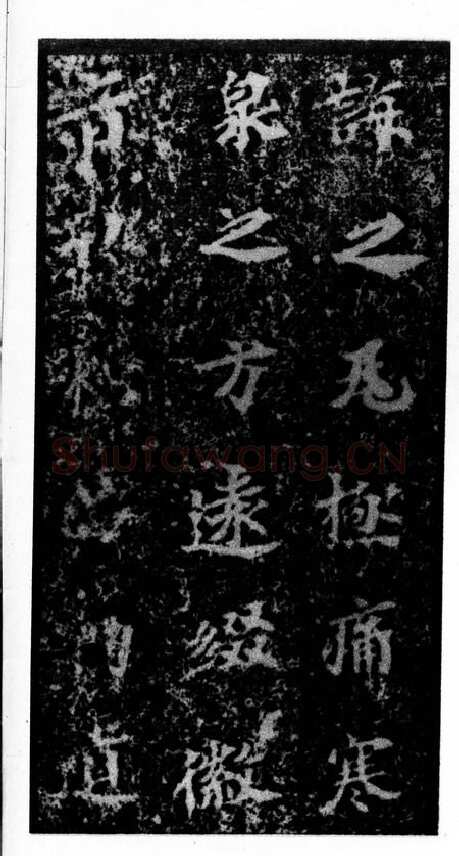 誨之凡極痛寒
泉之方遠綴徽
音道
Shufawang.CN